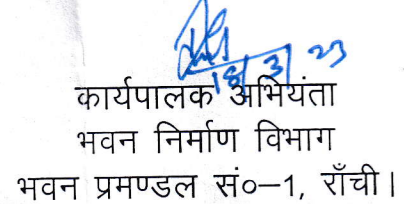 18/3/23
कार्यपालक अभियंता
भवन निर्माण विभाग
भवन प्रमण्डल सं०–1, राँची।